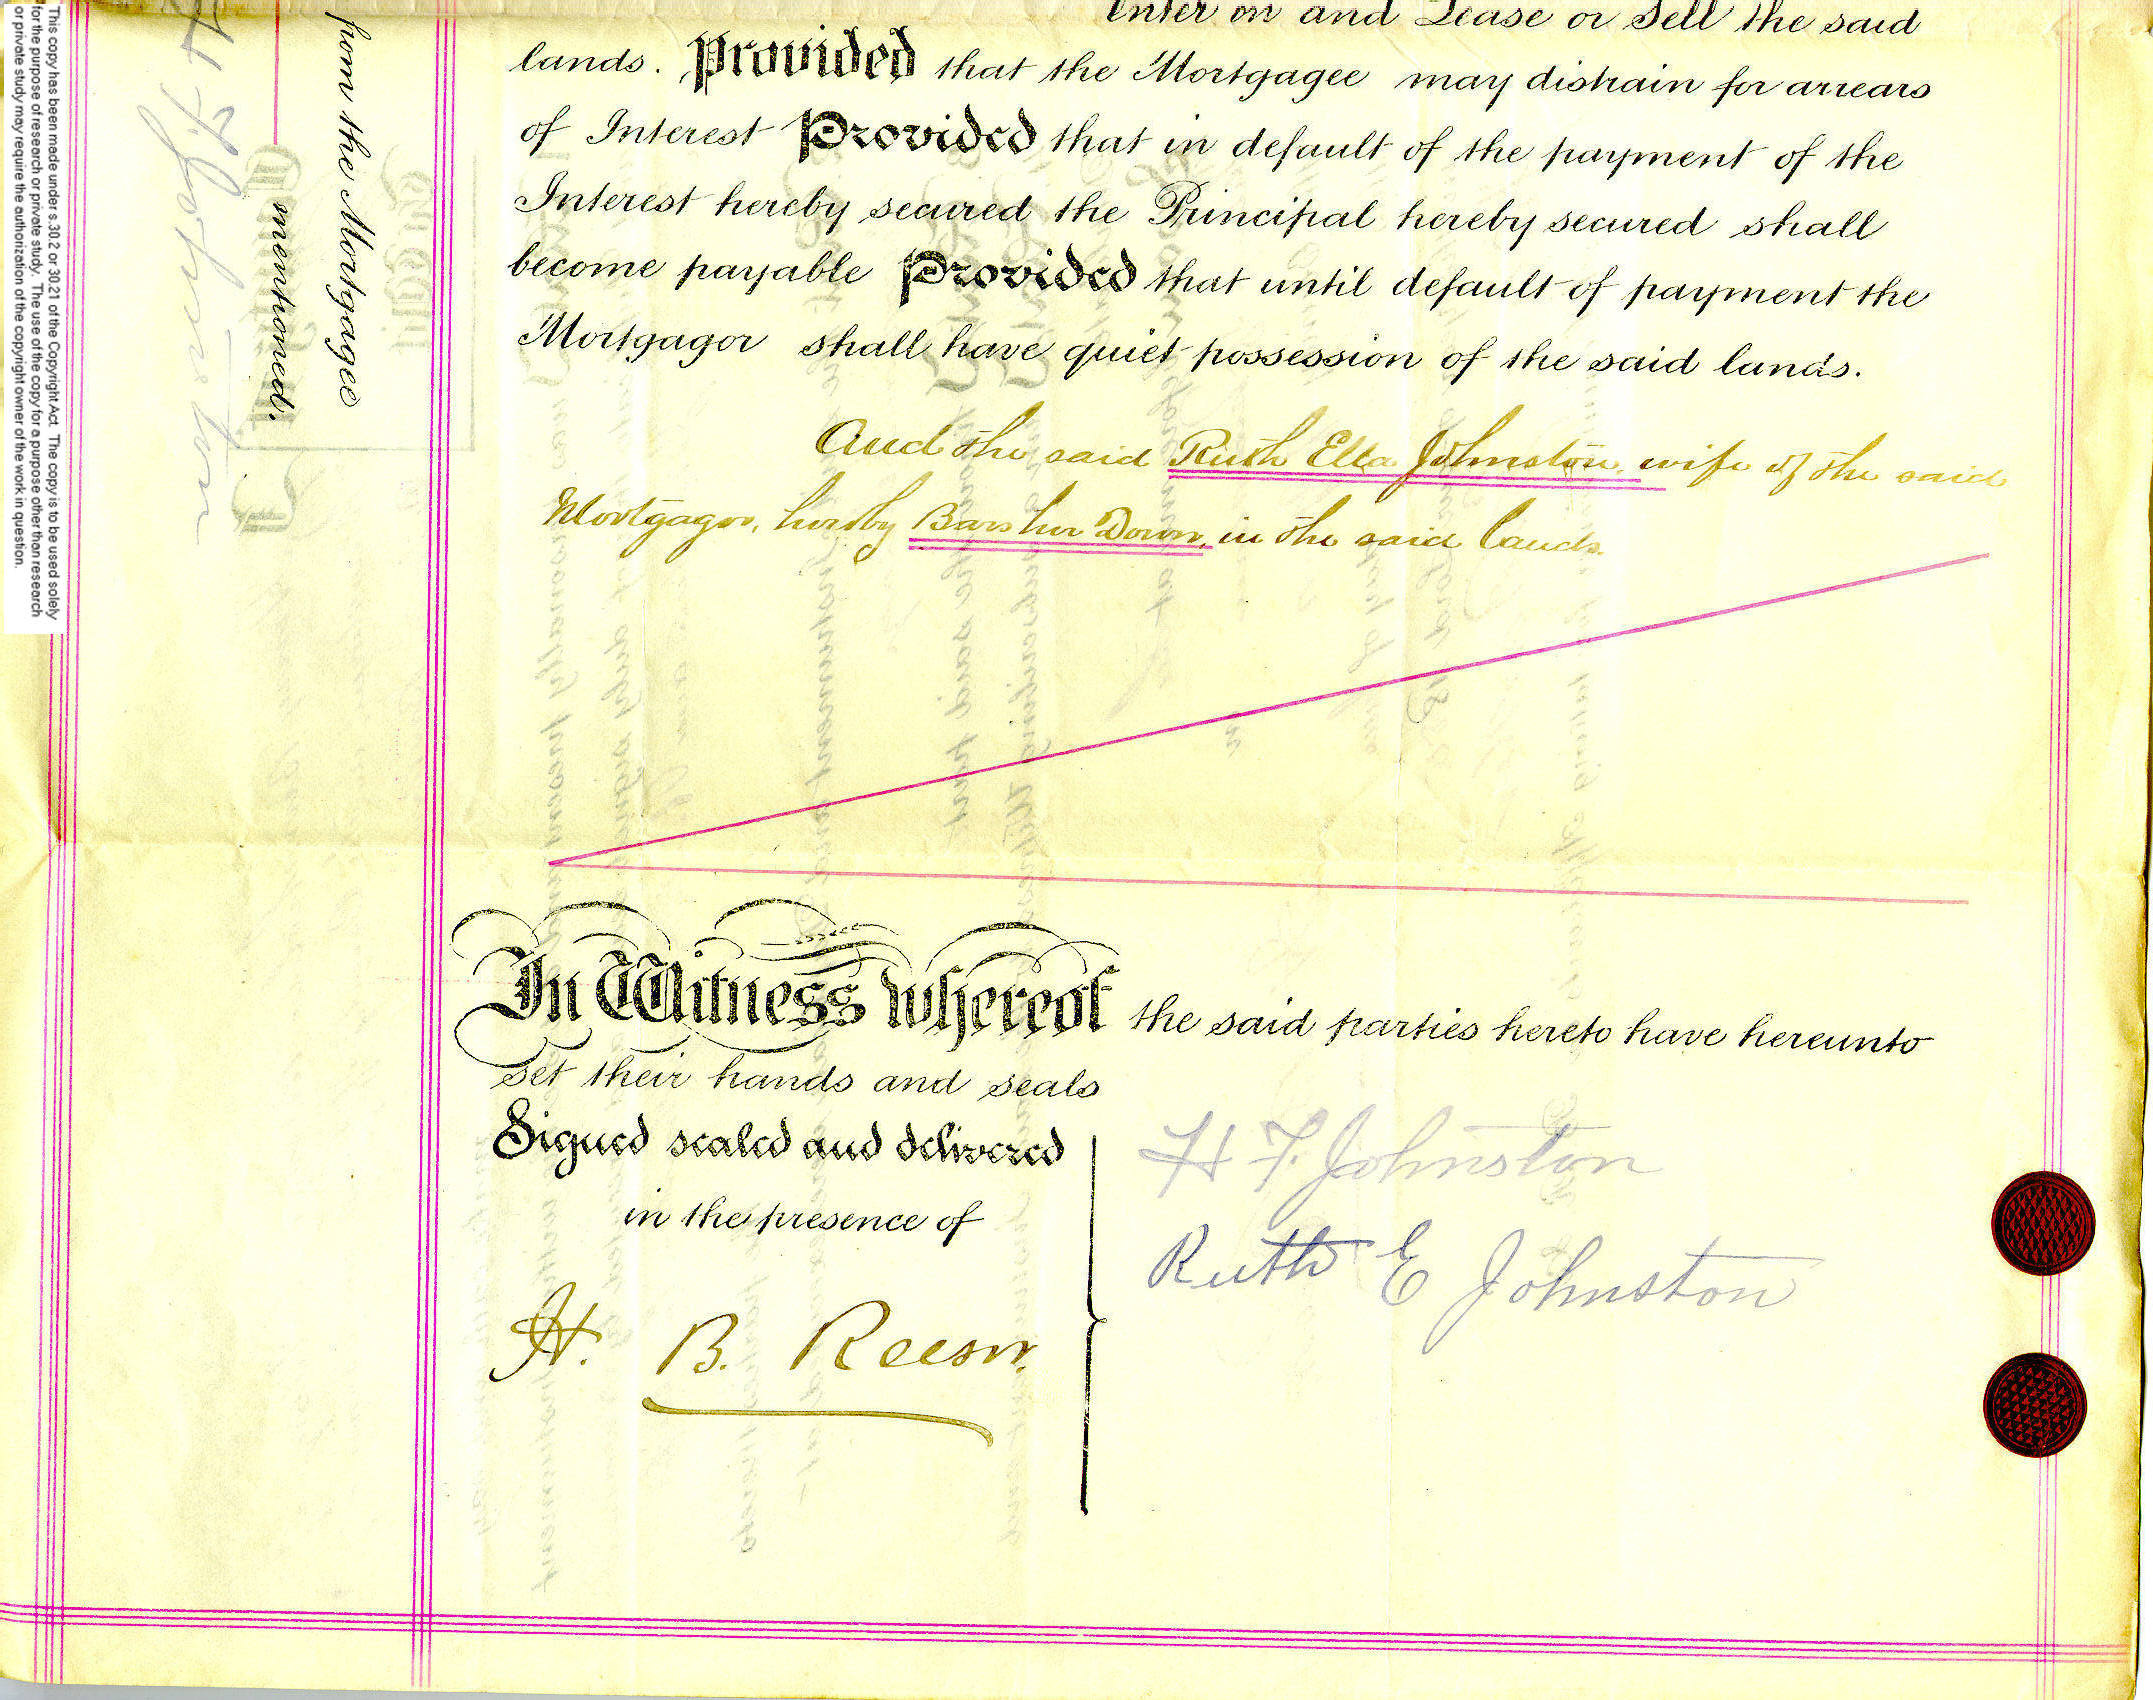 This copy has been made under s.30.2 or 30.21 of the Copyright Act. The copy is to be used solely
for the purpose of research or private study. The use of the copy for a purpose other than research
or private study may require the authorization of the copyright owner of the work in question.
H. F. Johnston
from the Mortgagee
mentioned.
Enter on and Lease or Sell the said
lands. Provided that the Mortgagee may distrain for arrears
of Interest Provided that in default of the payment of the
Interest hereby secured the Principal hereby secured shall
become payable Provided that until default of payment the
Mortgagor shall have quiet possession of the said lands.
And the said Ruth Ella Johnston, wife of the said
Mortgagor, hereby Bars her Dower, in the said lands.
In Witness whereof the said parties hereto have hereunto
set their hands and seals
Signed sealed and delivered
in the presence of
H F. Johnston
Ruth E Johnston
H. B. Reesor.